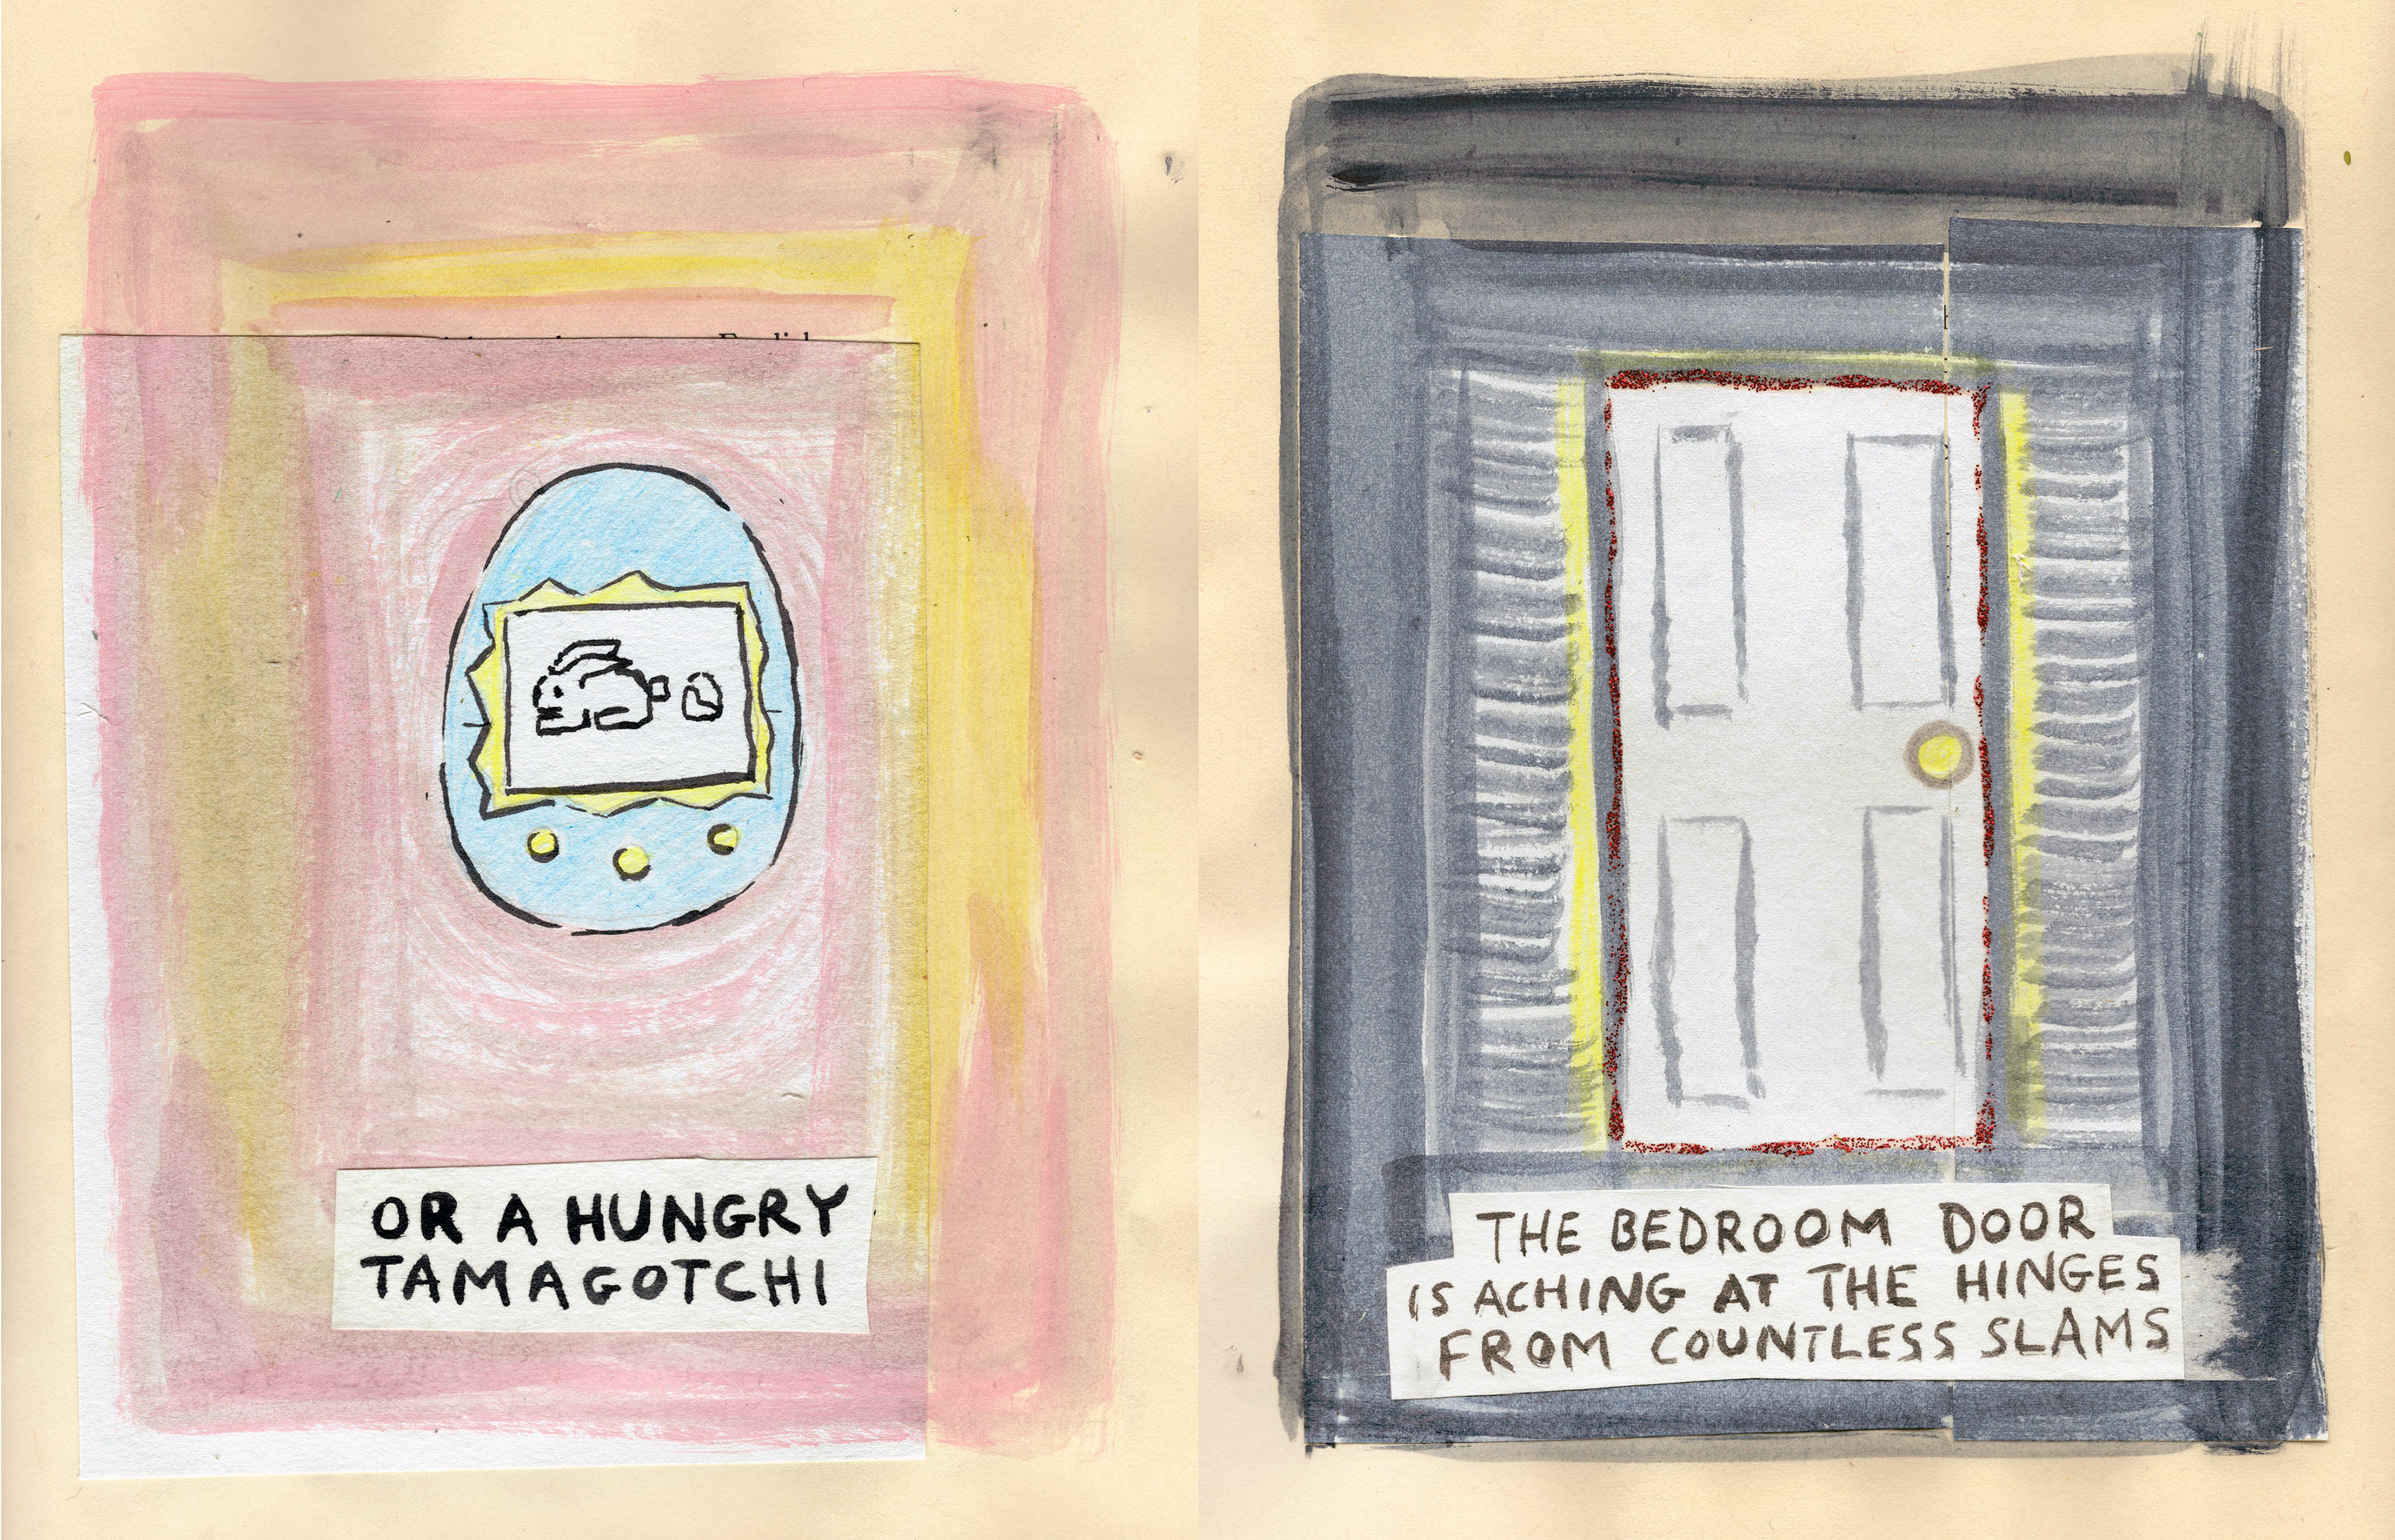 OR A HUNGRY
TAMAGOTCHI
THE BEDROOM DOOR
IS ACHING AT THE HINGES
FROM COUNTLESS SLAMS